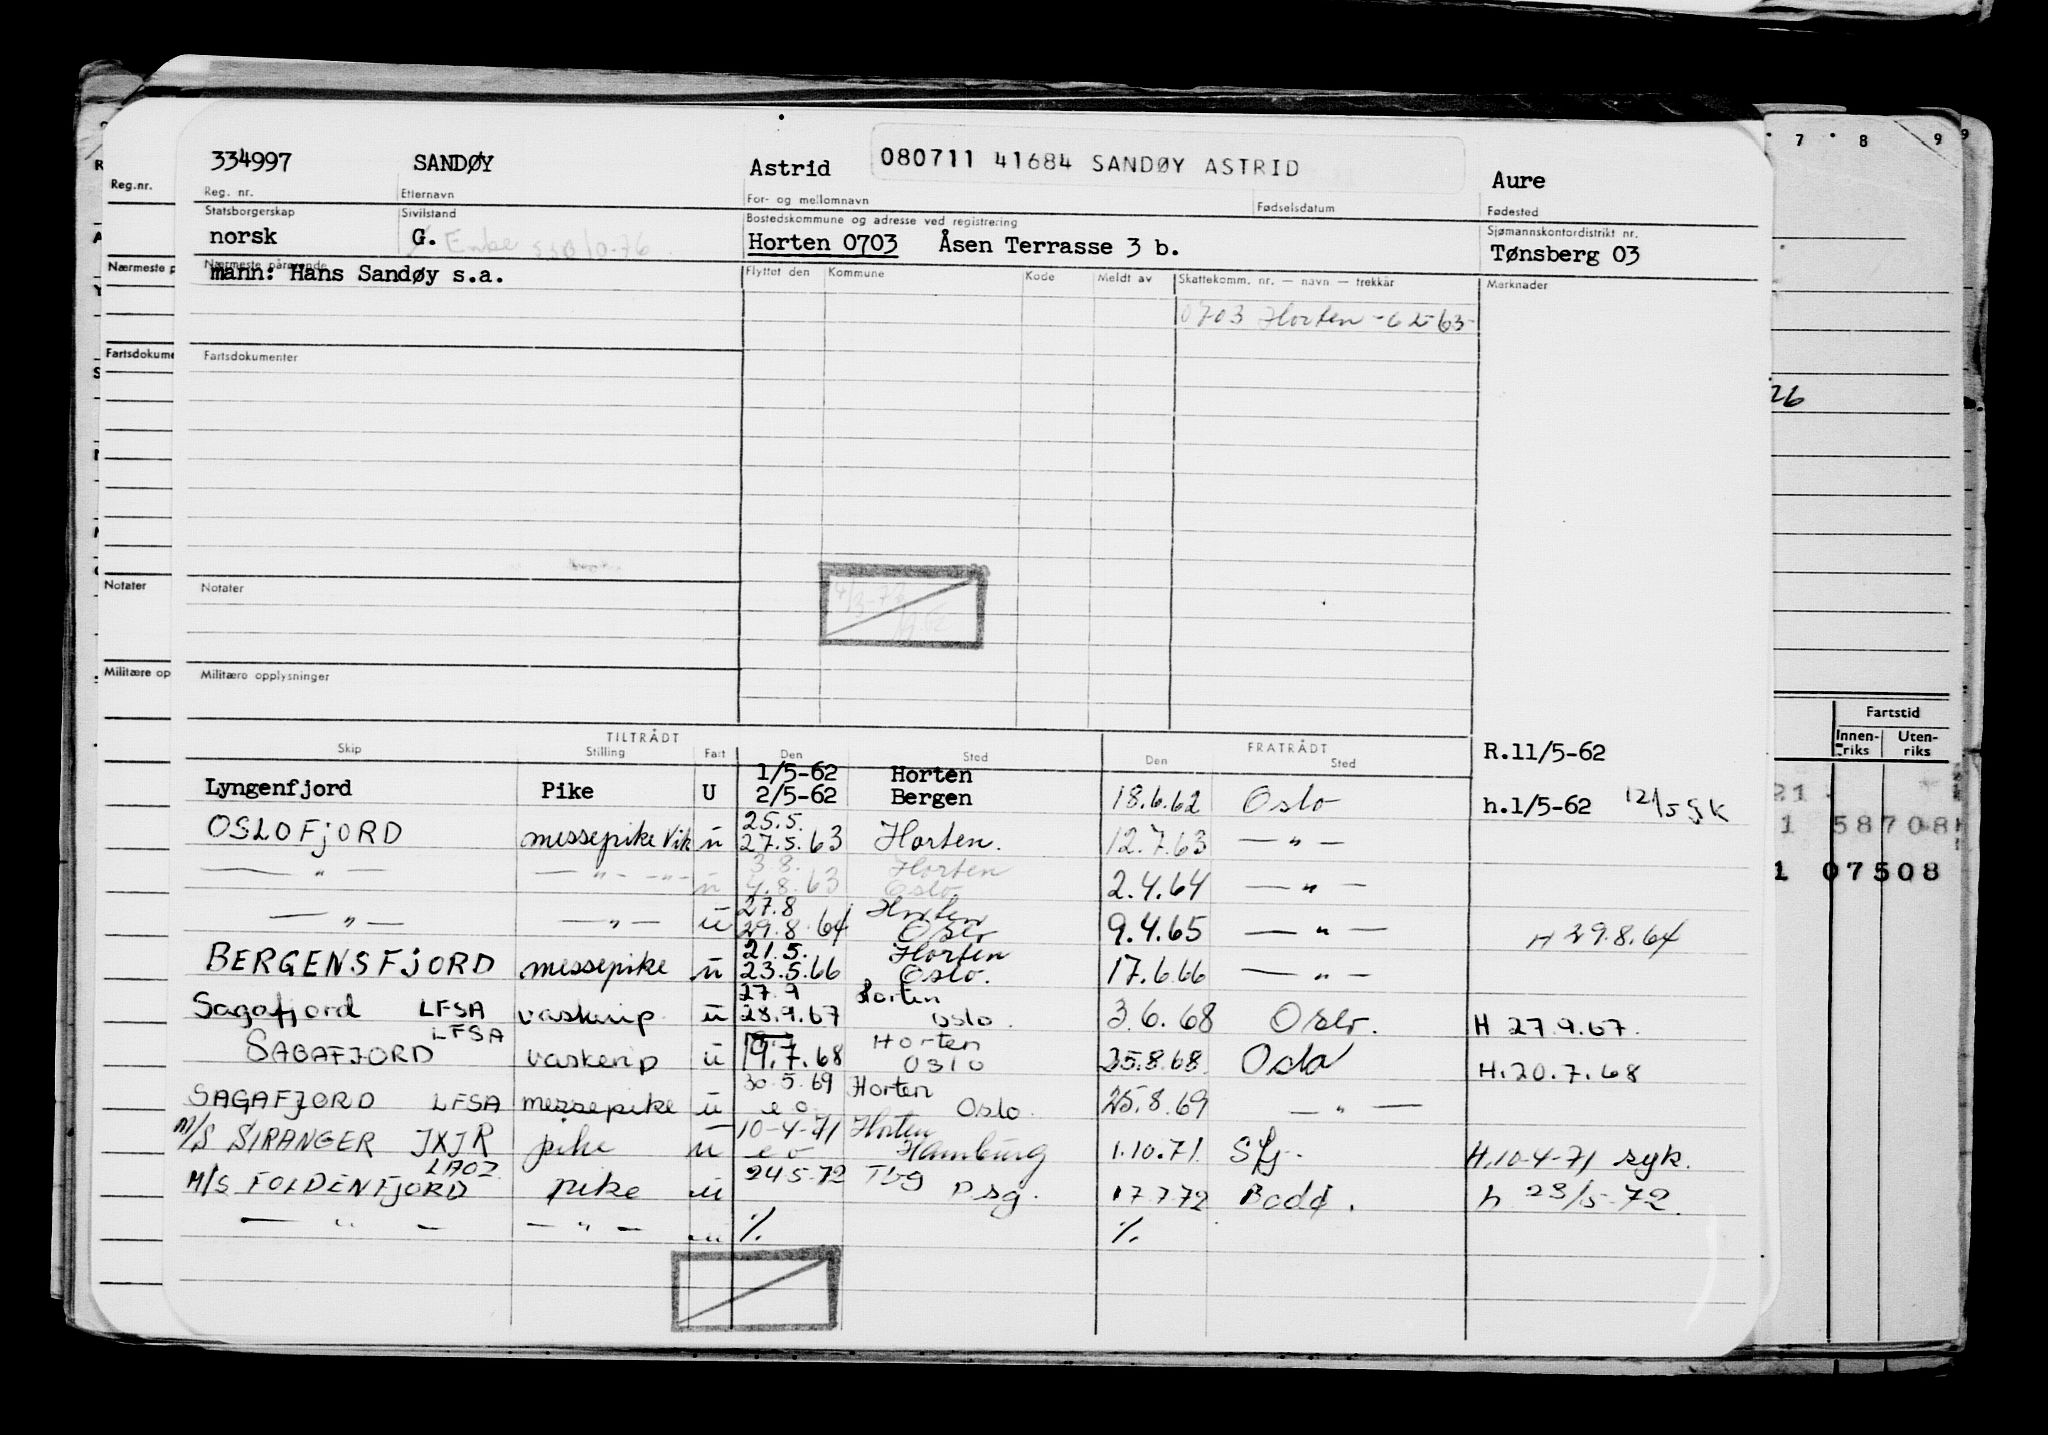 334997 SANDØY Astrid 080711 41684 SANDØY ASTRID Aure
Reg. nr. Etternavn For- og mellomnavn Fødselsdatum Fødested
Statsborgerskap Sivilstand Bostedskommune og adresse ved registrering Sjømannskontordistrikt nr.
norsk G. Enke Horten 0703 Åsen Terrasse 3 b. Tønsberg 03
Nærmeste pårørende Flyttet den Kommune Kode Meldt av Skattekomm. nr. — navn — trekkår Merknader
mann: Hans Sandøy s.a.
0703 Horten - 62-63-
Fartsdokumenter
Notater
Militære opplysninger
TILTRÅDT FRATRÅDT
Skip Stilling Fart Den Sted Den Sted R.11/5-62
1/5-62 Horten
Lyngenfjord Pike U 2/5-62 Bergen 18.6.62 Oslo h.1/5-62 12/5 GK
25.5.
OSLOFJORD messepike Vik u 27.5.63 Horten. 12.7.63 — " —
3.8. Horten
— " — — " — - " - u 4.8.63 Oslo 2.4.64 — " —
27.8 Horten
— " — — " — u 29.8.64 Oslo 9.4.65 — " — H 29.8.64
21.5. Horten
BERGENSFJORD messepike u 23.5.66 Oslo. 17.6.66 — " —
27.9 Horten
Sagafjord LFSA vaskerip u 28.9.67 oslo. 3.6.68 Oslo. H 27.9.67.
LFSA Horten
SAGAFJORD vaskerip u 19.7.68 Oslo 25.8.68 Oslo H.20.7.68
30.5.69 Horten
SAGAFJORD LFSA messepike u e o Oslo. 25.8.69 — " —
10-4-71 Horten
M/S SIRANGER JXJR pike u e o Hamburg 1.10.71 Sfj. H.10-4-71 syk.
LAOZ 24.5.72 Tbg
M/S FOLDENFJORD pike u Psg. 17.7.72 Bodø. h 23/5-72.
— " — — " — u %. %.
Reg.nr.
Nærmeste p
Fartsdokume
Notater
Militære op
7 8 9
26
Fartstid
Innen-riks Uten-riks
21
1 58708
1 07508